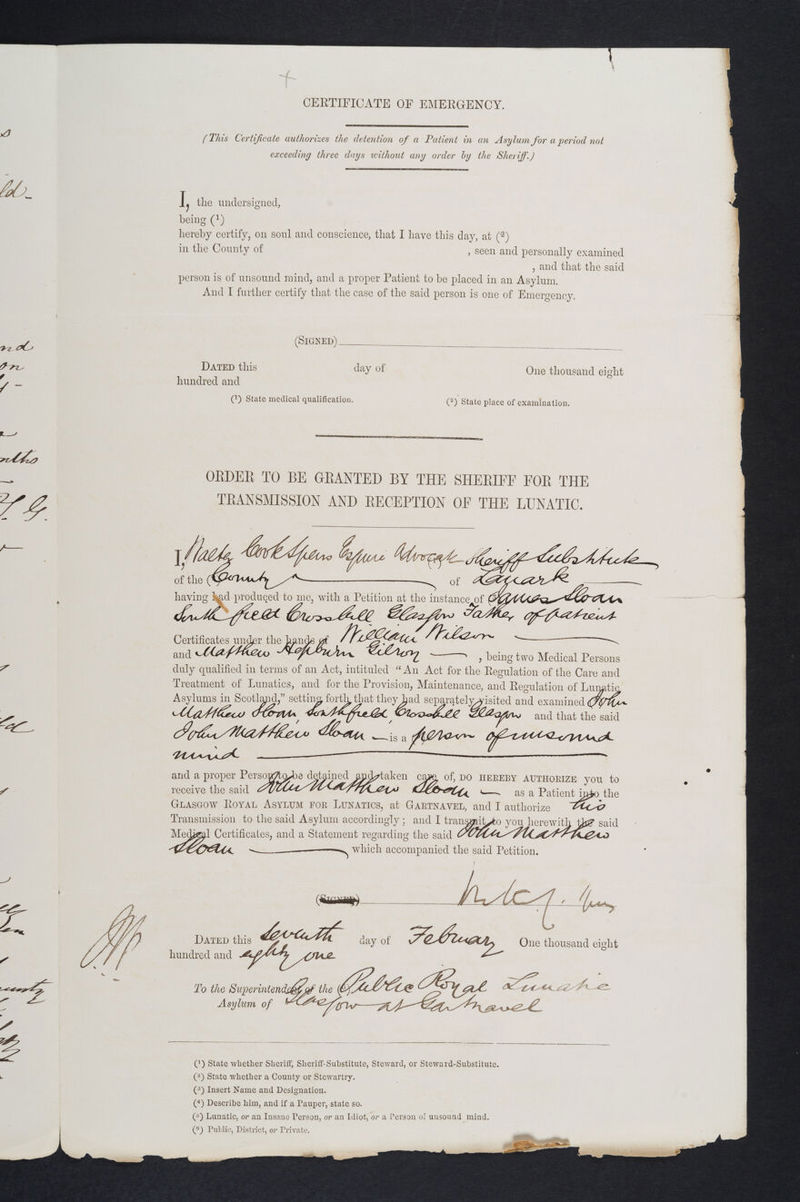 CERTIFICATE OF EMERGENCY.
(This Certificate authorizes the detention of a Patient in an Asylum for a period not
exceeding three days without any order by the Sheriff.)
I, the undersigned,
being (1)
hereby certify, on soul and conscience, that I have this day, at (2)
in the County of , seen and personally examined
, and that the said
person is of unsound mind, and a proper Patient to be placed in an Asylum.
And I further certify that the case of the said person is one of Emergency.
(SIGNED)
DATED this day of One thousand eight
hundred and
(1) State medical qualification. (2) State place of examination.
ORDER TO BE GRANTED BY THE SHERIFF FOR THE
TRANSMISSION AND RECEPTION OF THE LUNATIC.
I, Walter Cook Spens Esquire Advocate Sheriff Substitute
of the County of Lanark
having had produced to me, with a Petition at the instance of James Sloan
South field Crosshill Glasgow Father of patient
Certificates under the hands of William Wilson
and Matthew Hepburn Gilroy , being two Medical Persons
duly qualified in terms of an Act, intituled "An Act for the Regulation of the Care and
Treatment of Lunatics, and for the Provision, Maintenance, and Regulation of Lunatic
Asylums in Scotland," setting forth that they had separately visited and examined John
Matthew Sloan, Southfield, Crosshill Glasgow and that the said
John Matthew Sloan is a person of unsound
mind
and a proper Person to be detained and taken care of, DO HEREBY AUTHORIZE you to
receive the said John Matthew Sloan as a Patient into the
GLASGOW ROYAL ASYLUM FOR LUNATICS, at GARTNAVEL, and I authorize his
Transmission to the said Asylum accordingly; and I transmit to you herewith the said
Medical Certificates, and a Statement regarding the said John Matthew
Sloan which accompanied the said Petition.
(SIGNED)
DATED this seventh day of February One thousand eight
hundred and eighty one
To the Superintendent of the Public Royal Lunatic
Asylum of Glasgow at Gartnavel
(1) State whether Sheriff, Sheriff-Substitute, Steward, or Steward-Substitute.
(2) State whether a County or Stewartry.
(3) Insert Name and Designation.
(4) Describe him, and if a Pauper, state so.
(5) Lunatic, or an Insane Person, or an Idiot, or a Person of unsound mind.
(6) Public, District, or Private.